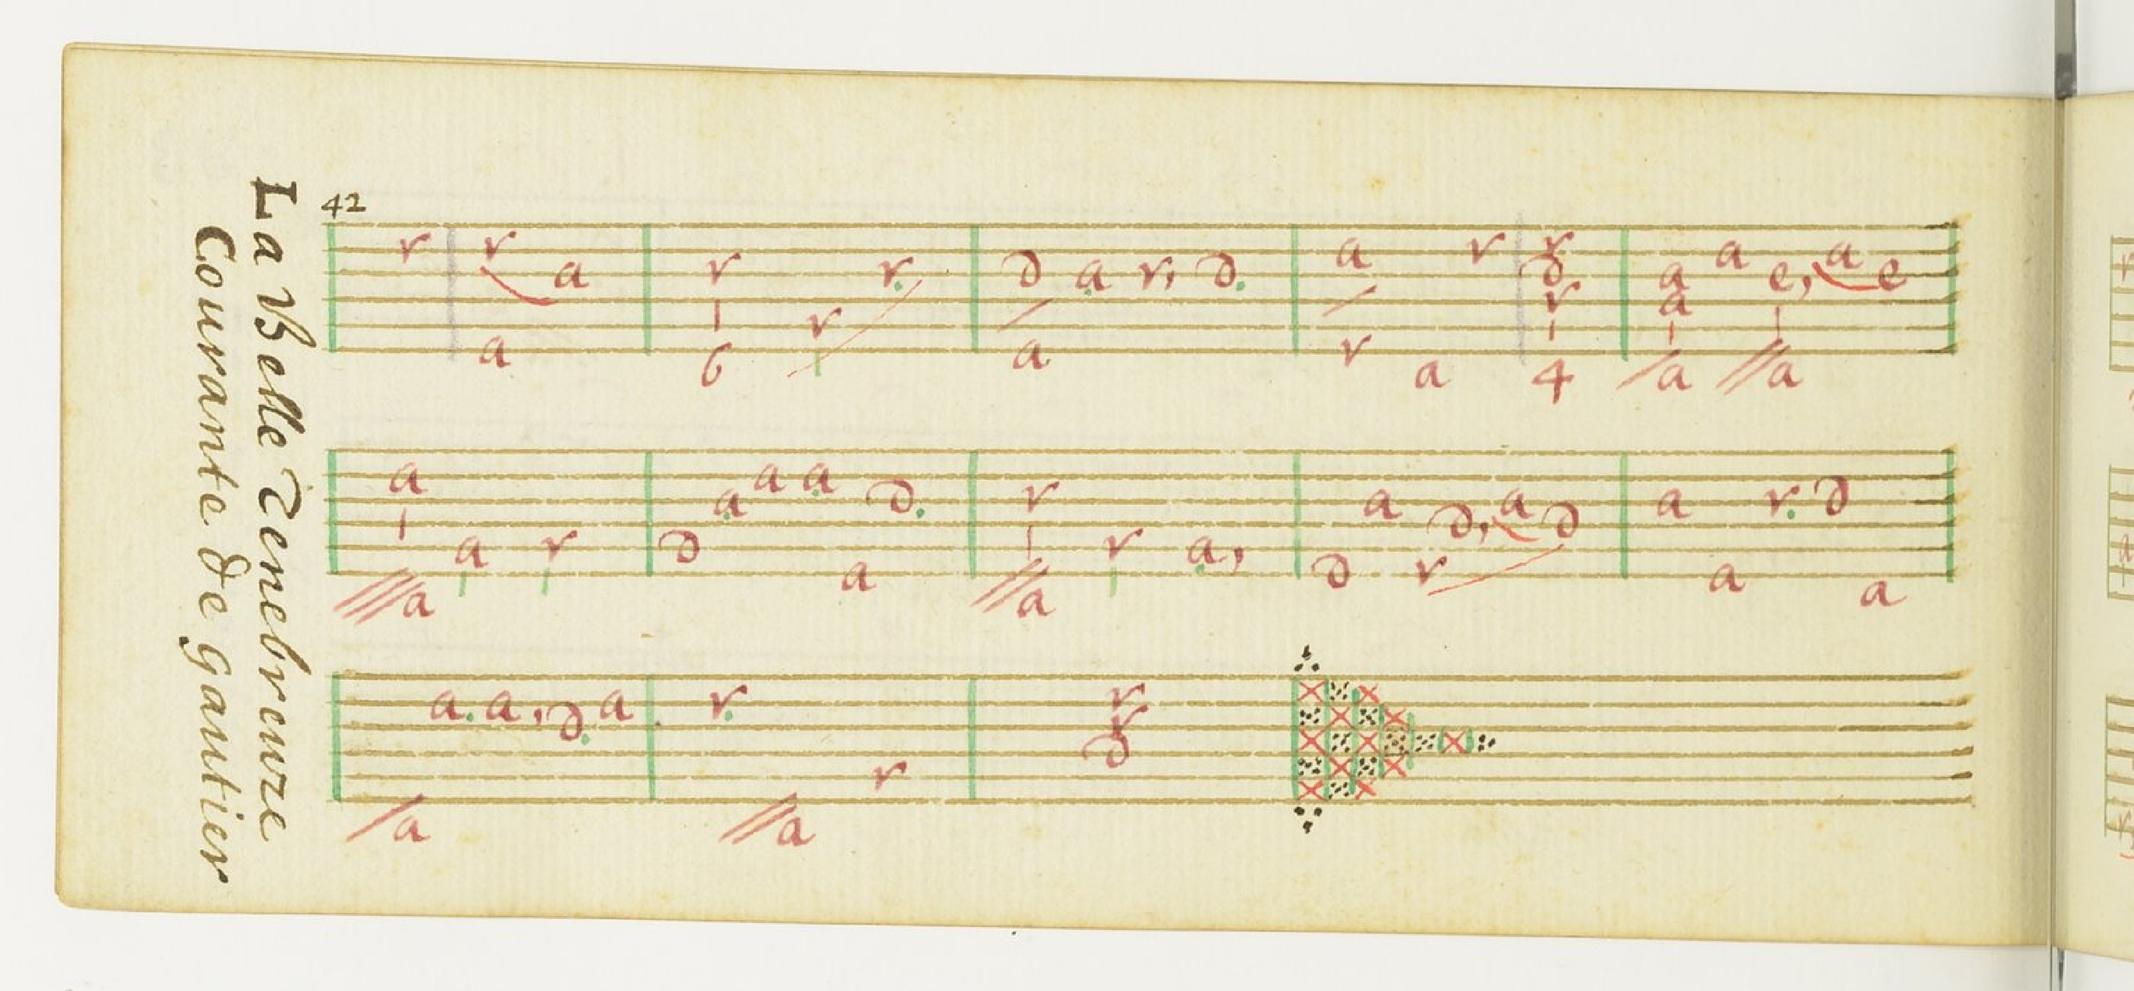 La Belle Tenebreuze
Courante de Gautier
42
r r a a r 6 r r. a a a r, a. a r a r r a r 4 a a a a e, a a e
a a a r a a a a a. a r a r a, a a r a, a a a a r. a a
a a. a, a. a r. a r r r a